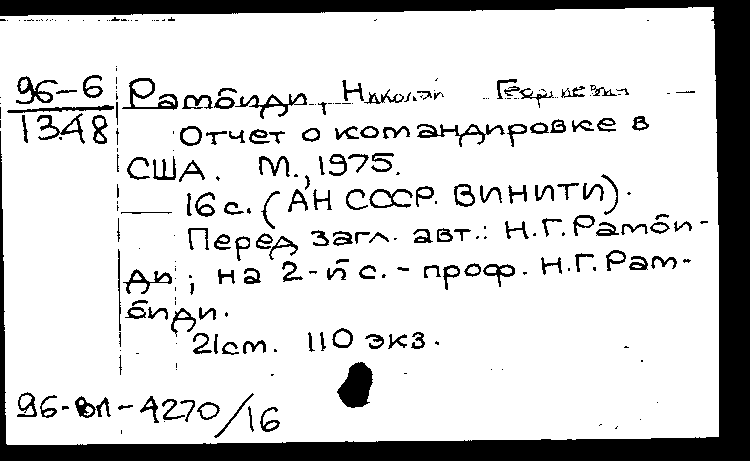 96-6 Рамбиди, Николай Георгиевич
1348 Отчет о командировке в
США. М., 1975.
16 с. (АН СССР. ВИНИТИ).
Перед загл. авт.: Н.Г. Рамби-
ди; на 2-й с. - проф. Н.Г. Рам-
биди.
21 см. 110 экз.
96-вл-4270/16